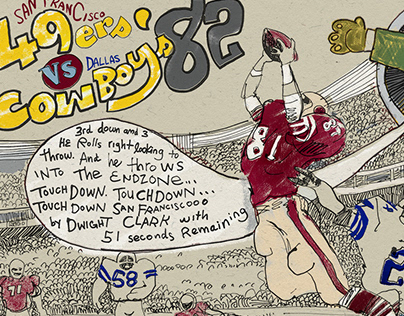 SAN FRANCISCO
49ers '82
VS DALLAS
COWBOYS
3rd down and 3
He Rolls right looking to
throw. And he throws
INTO THE ENDZONE...
TOUCHDOWN. TOUCHDOWN...
TOUCH DOWN SAN FRANCISCOOO
by DWIGHT CLARK with
51 seconds Remaining
81
58
71